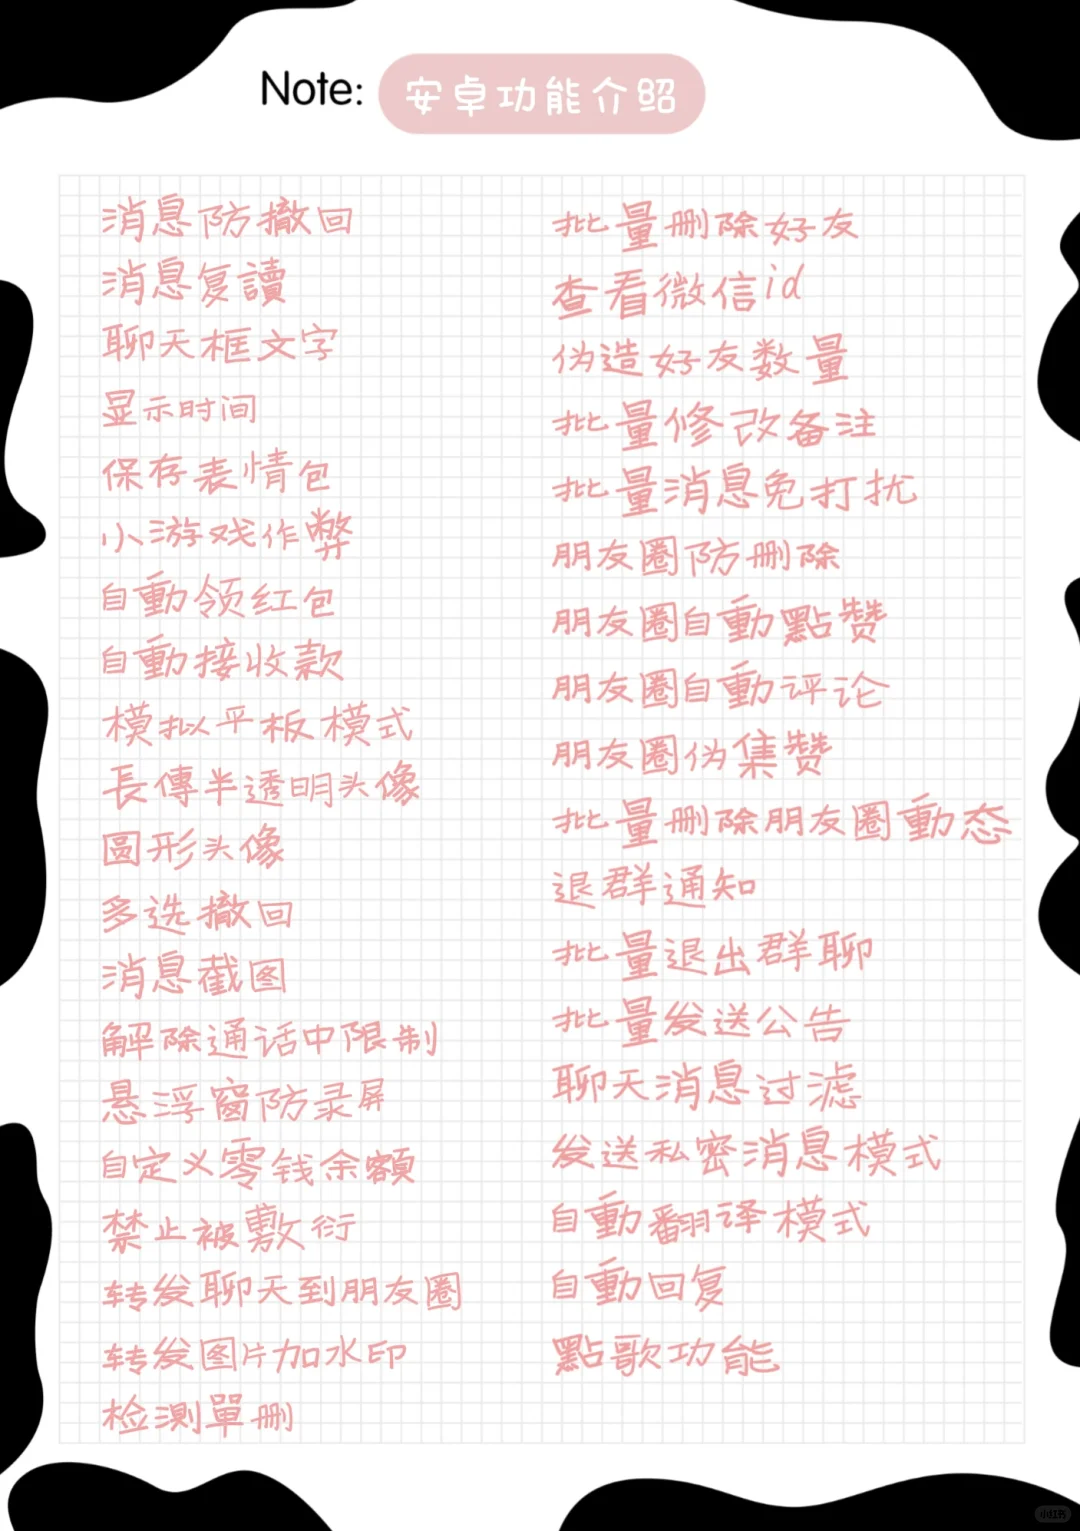 Note: 安卓功能介绍
消息防撤回
消息复讀
聊天框文字
显示时间
保存表情包
小游戏作弊
自動领红包
自動接收款
模拟平板模式
長傳半透明头像
圆形头像
多选撤回
消息截图
解除通话中限制
悬浮窗防录屏
自定义零钱余額
禁止被敷衍
转发聊天到朋友圈
转发图片加水印
检测單删
批量删除好友
查看微信id
伪造好友数量
批量修改备注
批量消息免打扰
朋友圈防删除
朋友圈自動點赞
朋友圈自動评论
朋友圈伪集赞
批量删除朋友圈動态
退群通知
批量退出群聊
批量发送公告
聊天消息过滤
发送私密消息模式
自動翻译模式
自動回复
點歌功能
小红书